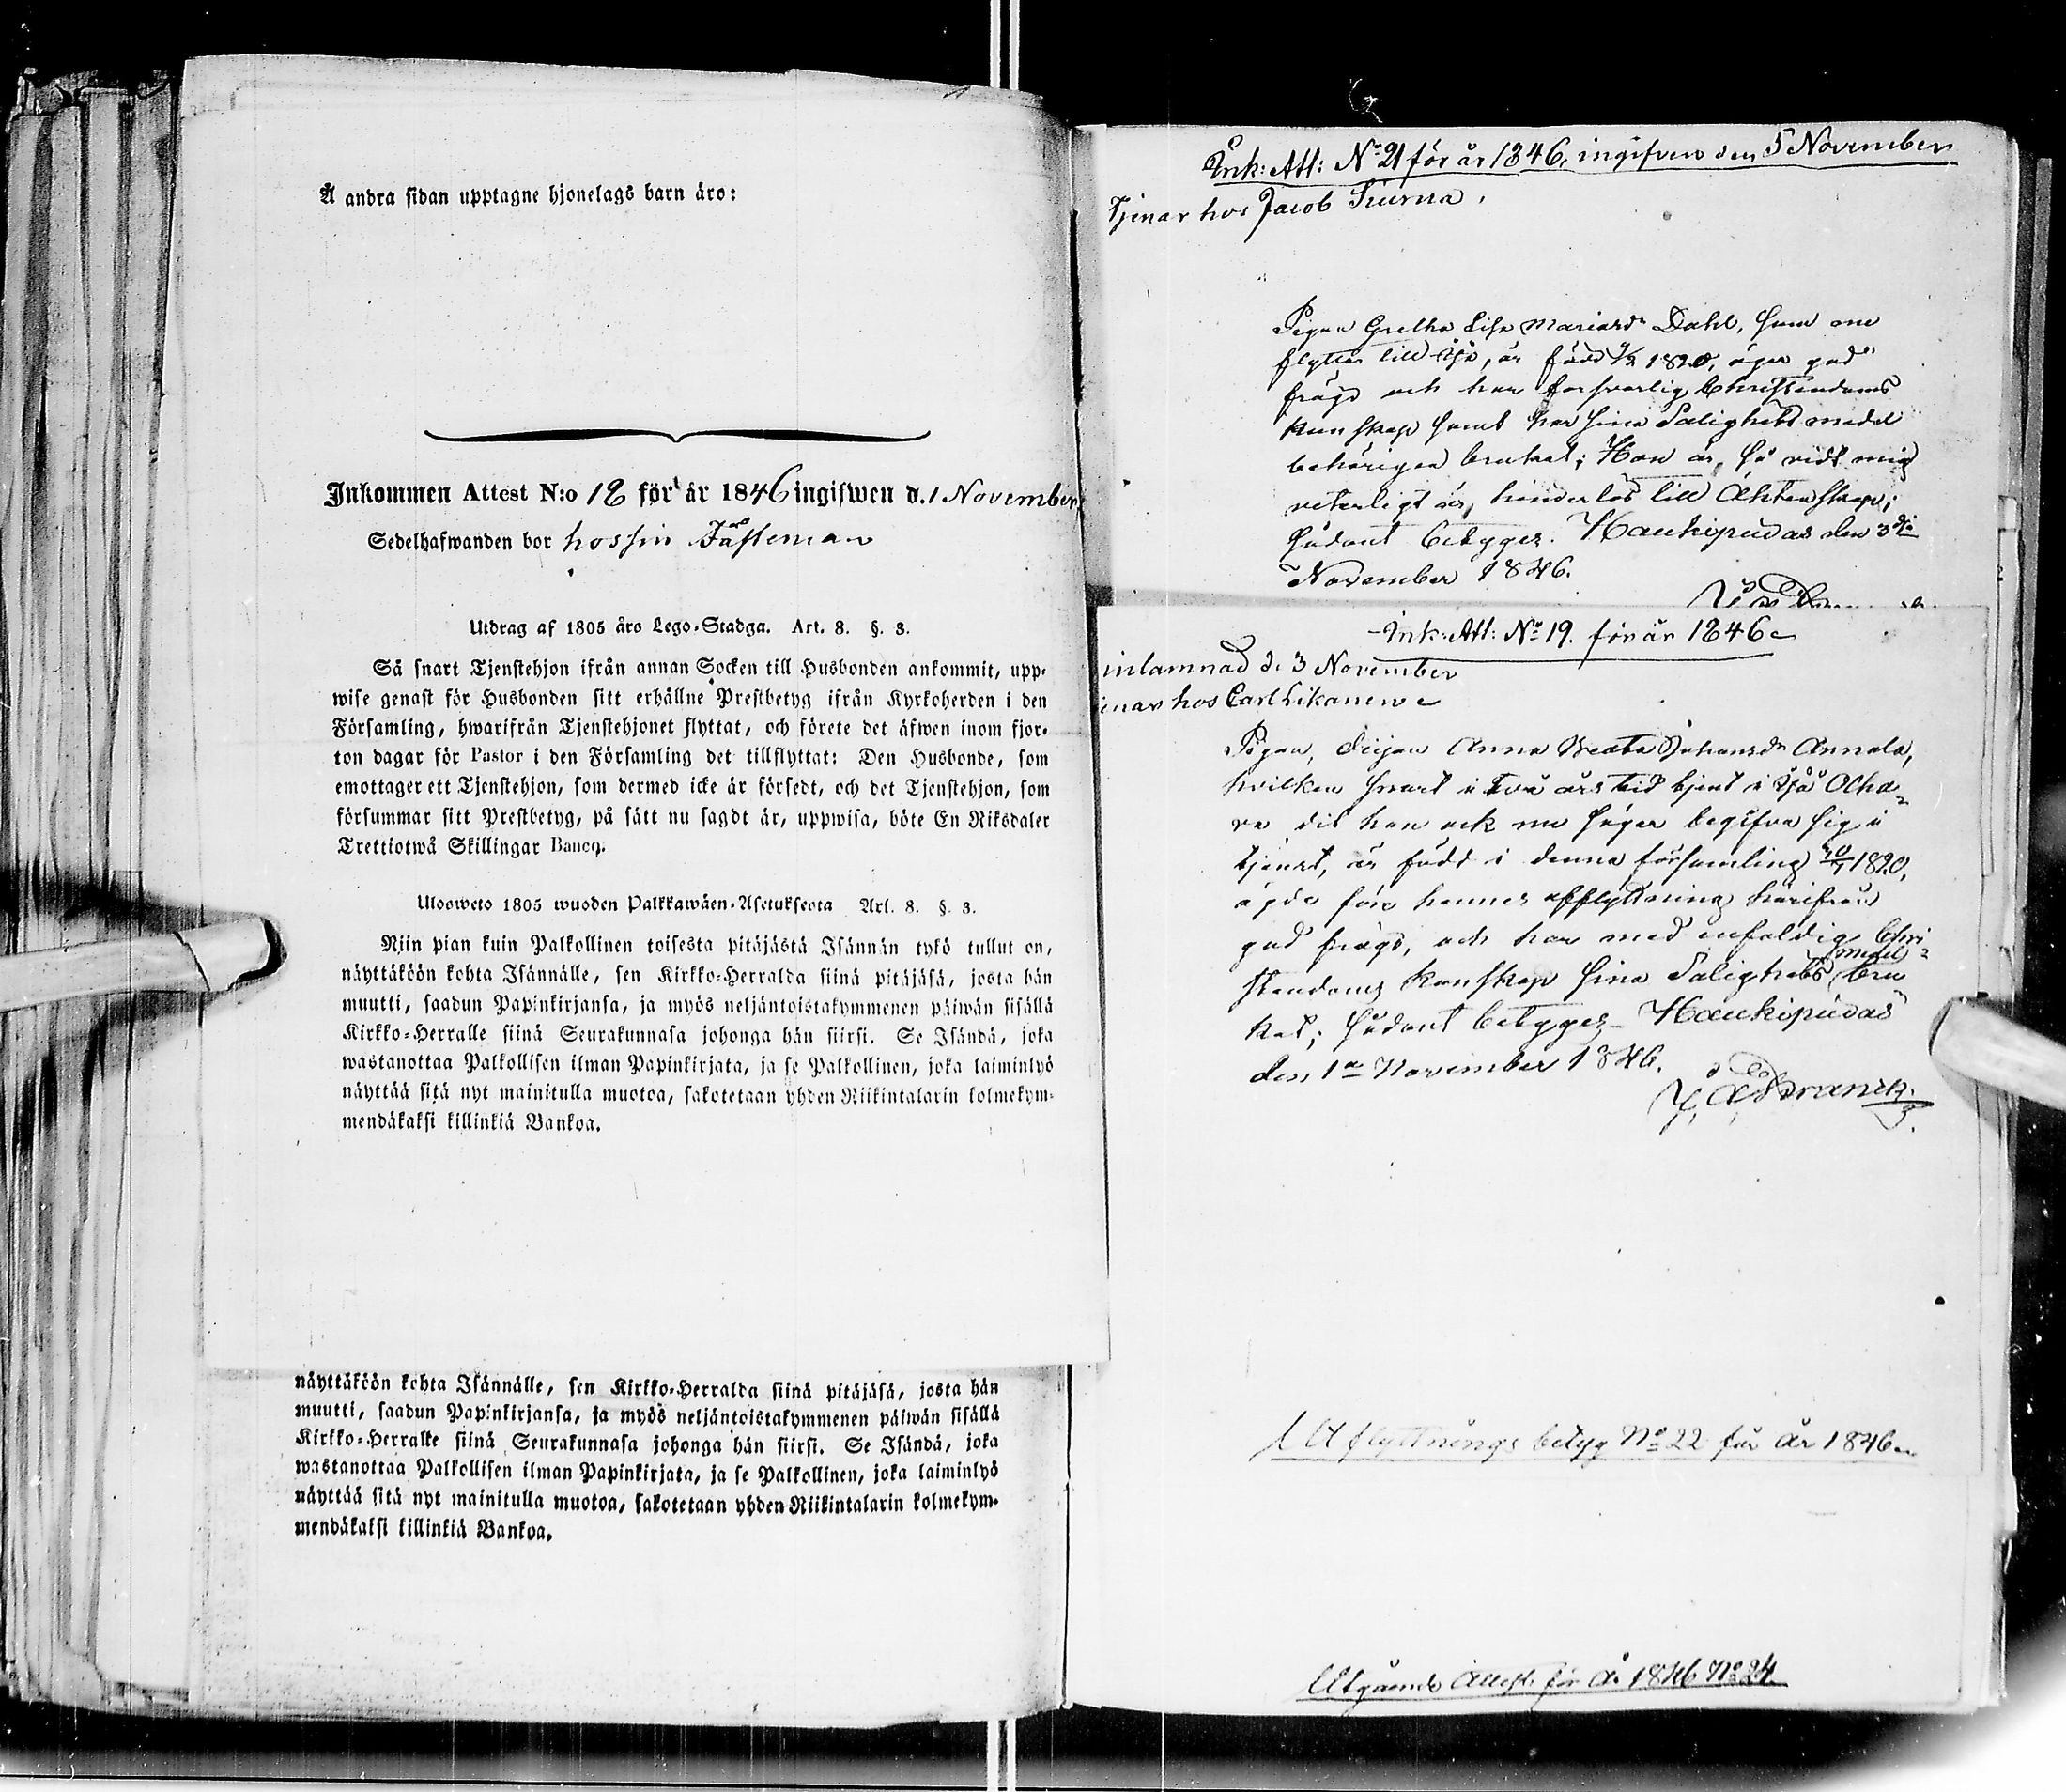 Å andra sidan upptagne hjonelags barn äro:
Inkommen Attest N:o 18 för år 1846 ingifwen d. 1 November
Sedelhafwanden bor hos sin Fästeman
Utdrag af 1805 års Lego-Stadga. Art. 8. §. 3.
Så snart Tjenstehjon ifrån annan Socken till Husbonden ankommit, upp-
wise genast för Husbonden sitt erhållne Prestbetyg ifrån Kyrkoherden i den
Församling, hwarifrån Tjenstehjonet flyttat, och förete det äfwen inom fjor-
ton dagar för Pastor i den Församling det tillflyttat: Den Husbonde, som
emottager ett Tjenstehjon, som dermed icke är försedt, och det Tjenstehjon, som
försummar sitt Prestbetyg, på sätt nu sagdt är, uppwisa, böte En Riksdaler
Trettiotwå Skillingar Banco.
Ulosweto 1805 wuoden Palkkawäen-Asetuksesta Art. 8. §. 3.
Niin pian kuin Palkollinen toisesta pitäjästä Isännän tykö tullut on,
näyttäköön kohta Isännälle, sen Kirkko-Herralda siinä pitäjäsä, josta hän
muutti, saadun Papinkirjansa, ja myös neljäntoistakymmenen päiwän sisällä
Kirkko-Herralle siinä Seurakunnasa johonga hän siirsi. Se Isändä, joka
wastanottaa Palkollisen ilman Papinkirjata, ja se Palkollinen, joka laiminlyö
näyttää sitä nyt mainitulla muotoa, sakotetaan yhden Riikintalarin kolmekym-
mendäkaksi killinkiä Bankoa.
näyttäköön kohta Isännälle, sen Kirkko-Herralda siinä pitäjäsä, josta hän
muutti, saadun Papinkirjansa, ja myös neljäntoistakymmenen päiwän sisällä
Kirkko-Herralle siinä Seurakunnasa johonga hän siirsi. Se Isändä, joka
wastanottaa Palkollisen ilman Papinkirjata, ja se Palkollinen, joka laiminlyö
näyttää sitä nyt mainitulla muotoa, sakotetaan yhden Riikintalarin kolmekym-
mendäkaksi killinkiä Bankoa.
Ink: Att: No 21 för år 1846, ingifven den 5 November
Tjenar hos Jacob
Pigan Gretha Lisa Mariasdr Dahl, som nu
flyttar till Ijo, är född 1820, äger god
frägd och har försvarlig Christendoms
kunskap samt har sina Salighets medel
behörigen brukat; Hon är, så vidt mig
veterligt är, hinderlös till Äktenskap;
sådant betyges. Haukipudas den 3die
November 1846.
Ink: Att: No 19. för år 1846
inlämnad d. 3 November
enar hos Carl Likanen
Pigan, Anna Beata Johansdr Annala,
hvilken snart i två års tid tjent i Ijo Olha-
va dit hon ock nu säger begifva sig i
tjenst, är född i denna församling 1820,
ägde före hennes afflyttning härifrån
god frägd, och har med enfaldig Chri-
stendoms kunskap sina Salighets medel bru
kat; sådant betyges Haukipudas
den 1a November 1846.
Utflyttnings betyg No 22 för År 1846
Utgående Attest för År 1846 No 24.